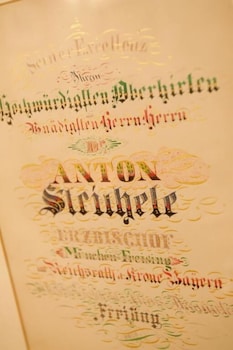 Seiner Excellenz
Ihrem
Hochwürdigsten Oberhirten
Gnädigsten Herrn Herrn
Dr
ANTON
Steichele
ERZBISCHOF
München-Freising
Reichsrath d. Krone Bayern
Freising